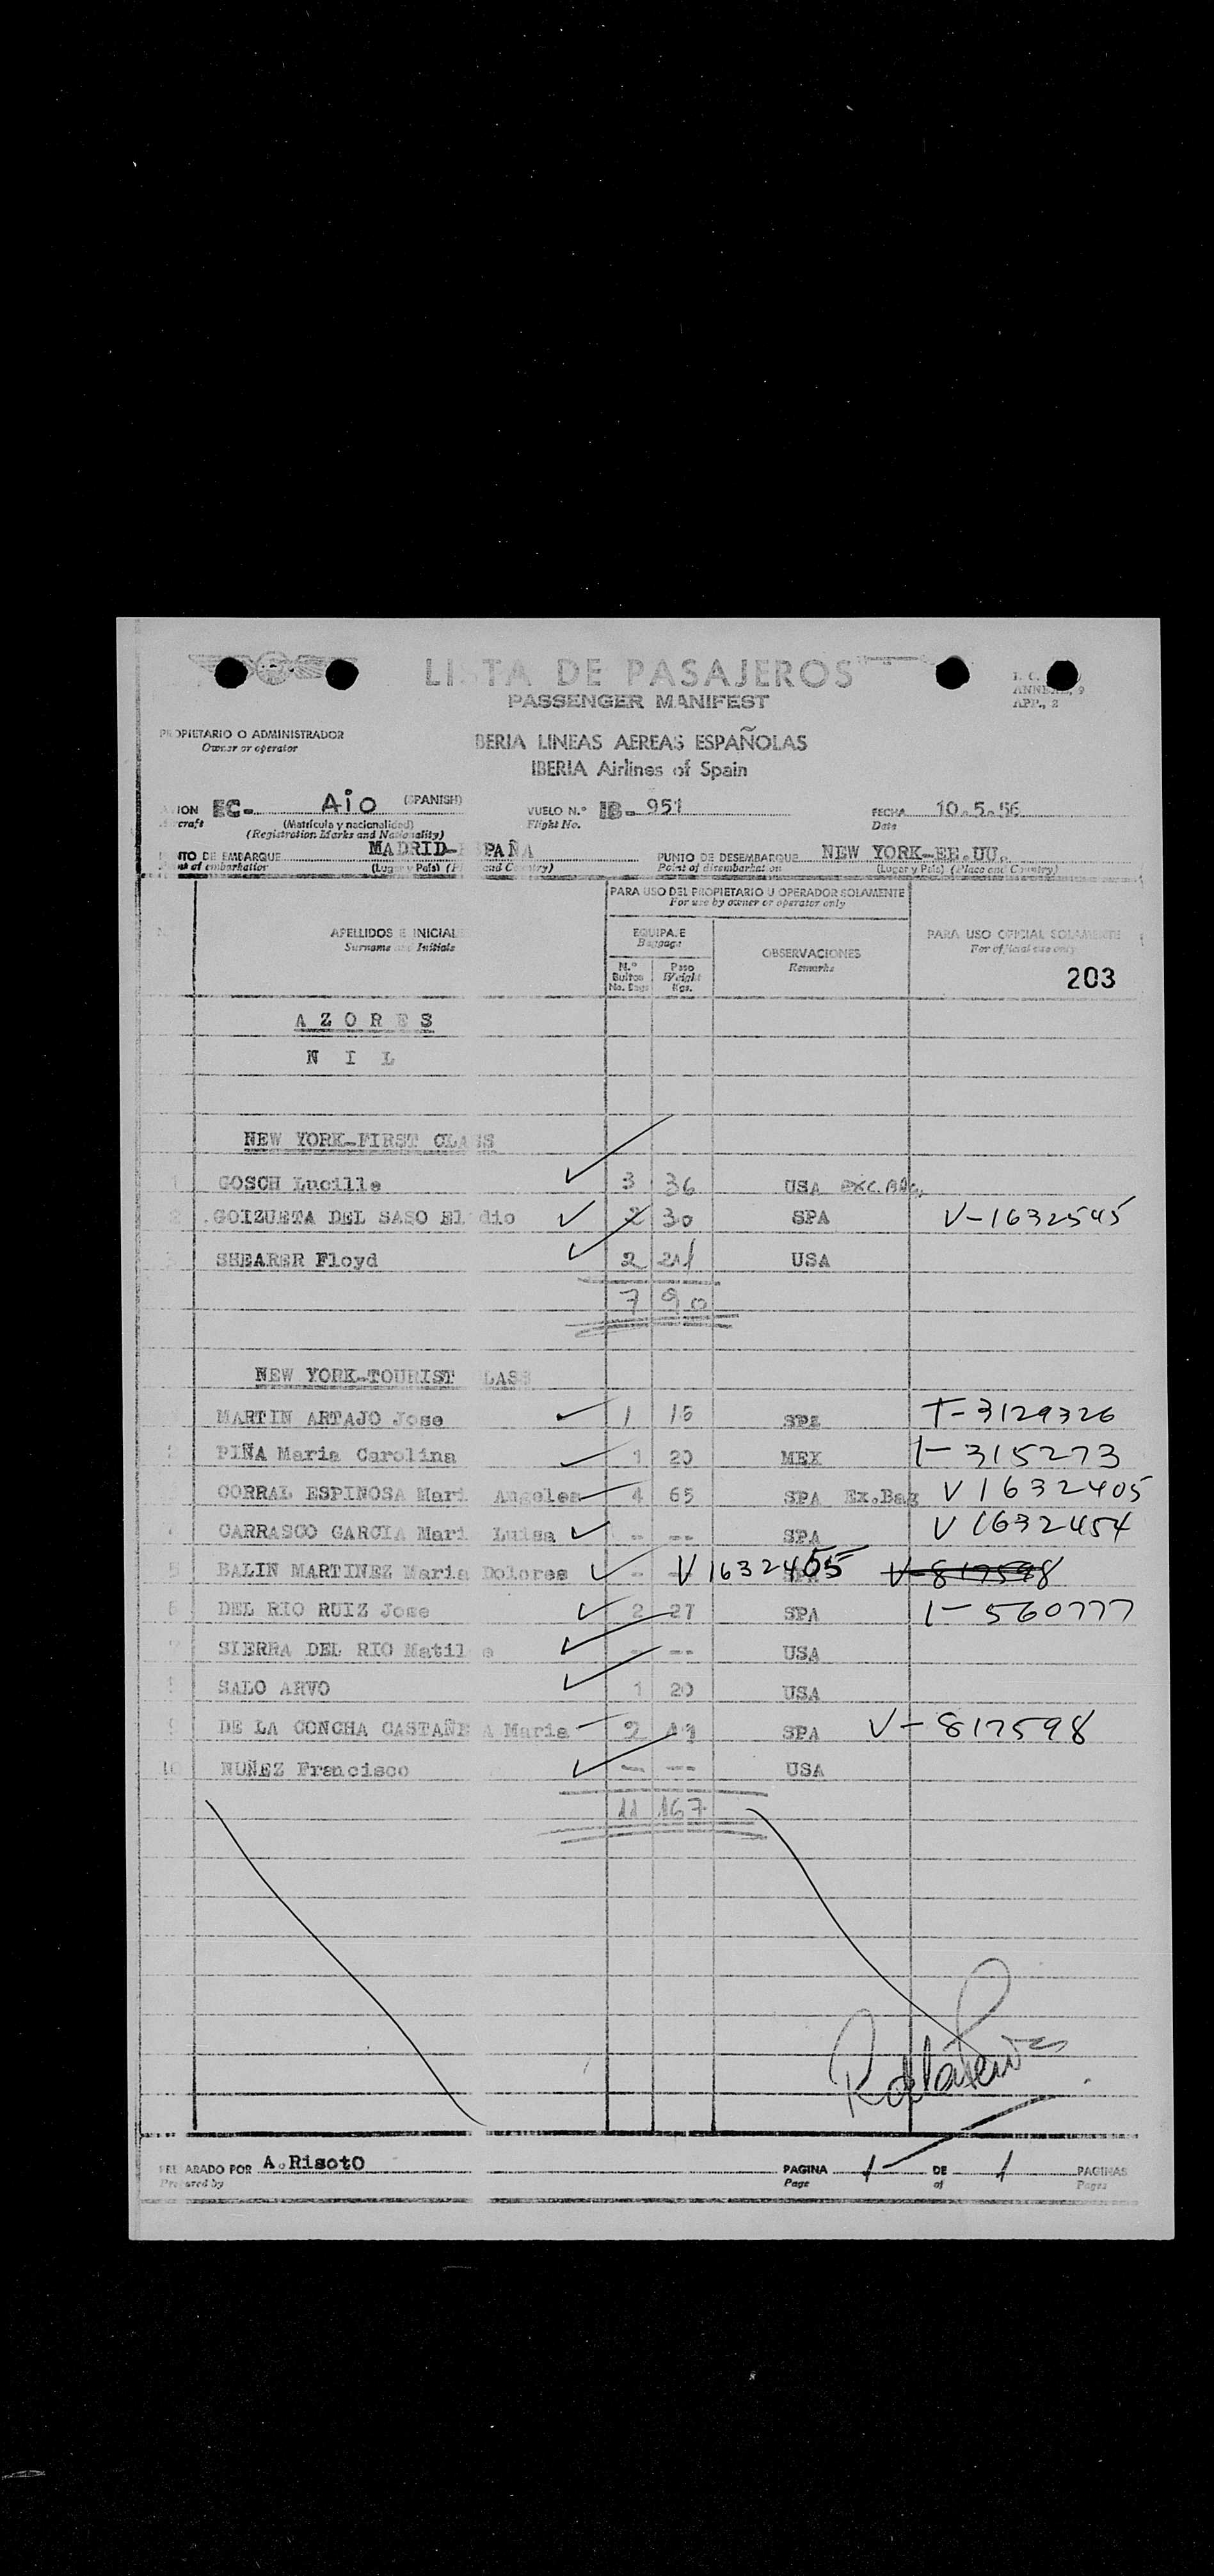 LISTA DE PASAJEROS
PASSENGER MANIFEST
ANNEX, 9
APP., 2
PROPIETARIO O ADMINISTRADOR
Owner or operator
IBERIA LINEAS AEREAS ESPAÑOLAS
IBERIA Airlines of Spain
AVION EC- AiO (SPANISH) VUELO N.º IB- 951 FECHA 10.5.56
Aircraft (Matrícula y nacionalidad) Flight No. Date
(Registration Marks and Nationality)
PUNTO DE EMBARQUE MADRID-ESPAÑA PUNTO DE DESEMBARQUE NEW YORK-EE.UU.
Point of embarkation (Lugar y País) (Place and Country) Point of disembarkation (Lugar y País) (Place and Country)
PARA USO DEL PROPIETARIO U OPERADOR SOLAMENTE
For use by owner or operator only
APELLIDOS E INICIALES EQUIPAJE OBSERVACIONES PARA USO OFICIAL SOLAMENTE
Surname and Initials Baggage Remarks For official use only
N.º Bultos Peso
No. Bags Weight Kgs.
203
AZORES
NIL
NEW YORK-FIRST CLASS
1 GOSCH Lucille 3 36 USA EXC. BAG.
2 GOIZUETA DEL SASO Eladio 2 30 SPA V-1632545
3 SHEARER Floyd 2 24 USA
7 90
NEW YORK-TOURIST CLASS
1 MARTIN ARTAJO Jose 1 15 SPA T-3129326
2 PIÑA Maria Carolina 1 20 MEX I-315273
CORRAL ESPINOSA Maria Angeles 4 65 SPA Ex.Bag V 1632405
4 CARRASCO GARCIA Maria Luisa -- -- SPA V 1632454
5 BALIN MARTINEZ Maria Dolores -- V 1632455 SPA V-817598
6 DEL RIO RUIZ Jose 2 27 SPA I-560777
7 SIERRA DEL RIO Matilde - -- USA
8 SALO ARVO 1 20 USA
9 DE LA CONCHA CASTAÑEDA Maria 2 SPA V-817598
10 NUÑEZ Francisco -- -- USA
11 167
PREPARADO POR A.Risoto PAGINA 1 DE 1 PAGINAS
Prepared by Page of Pages